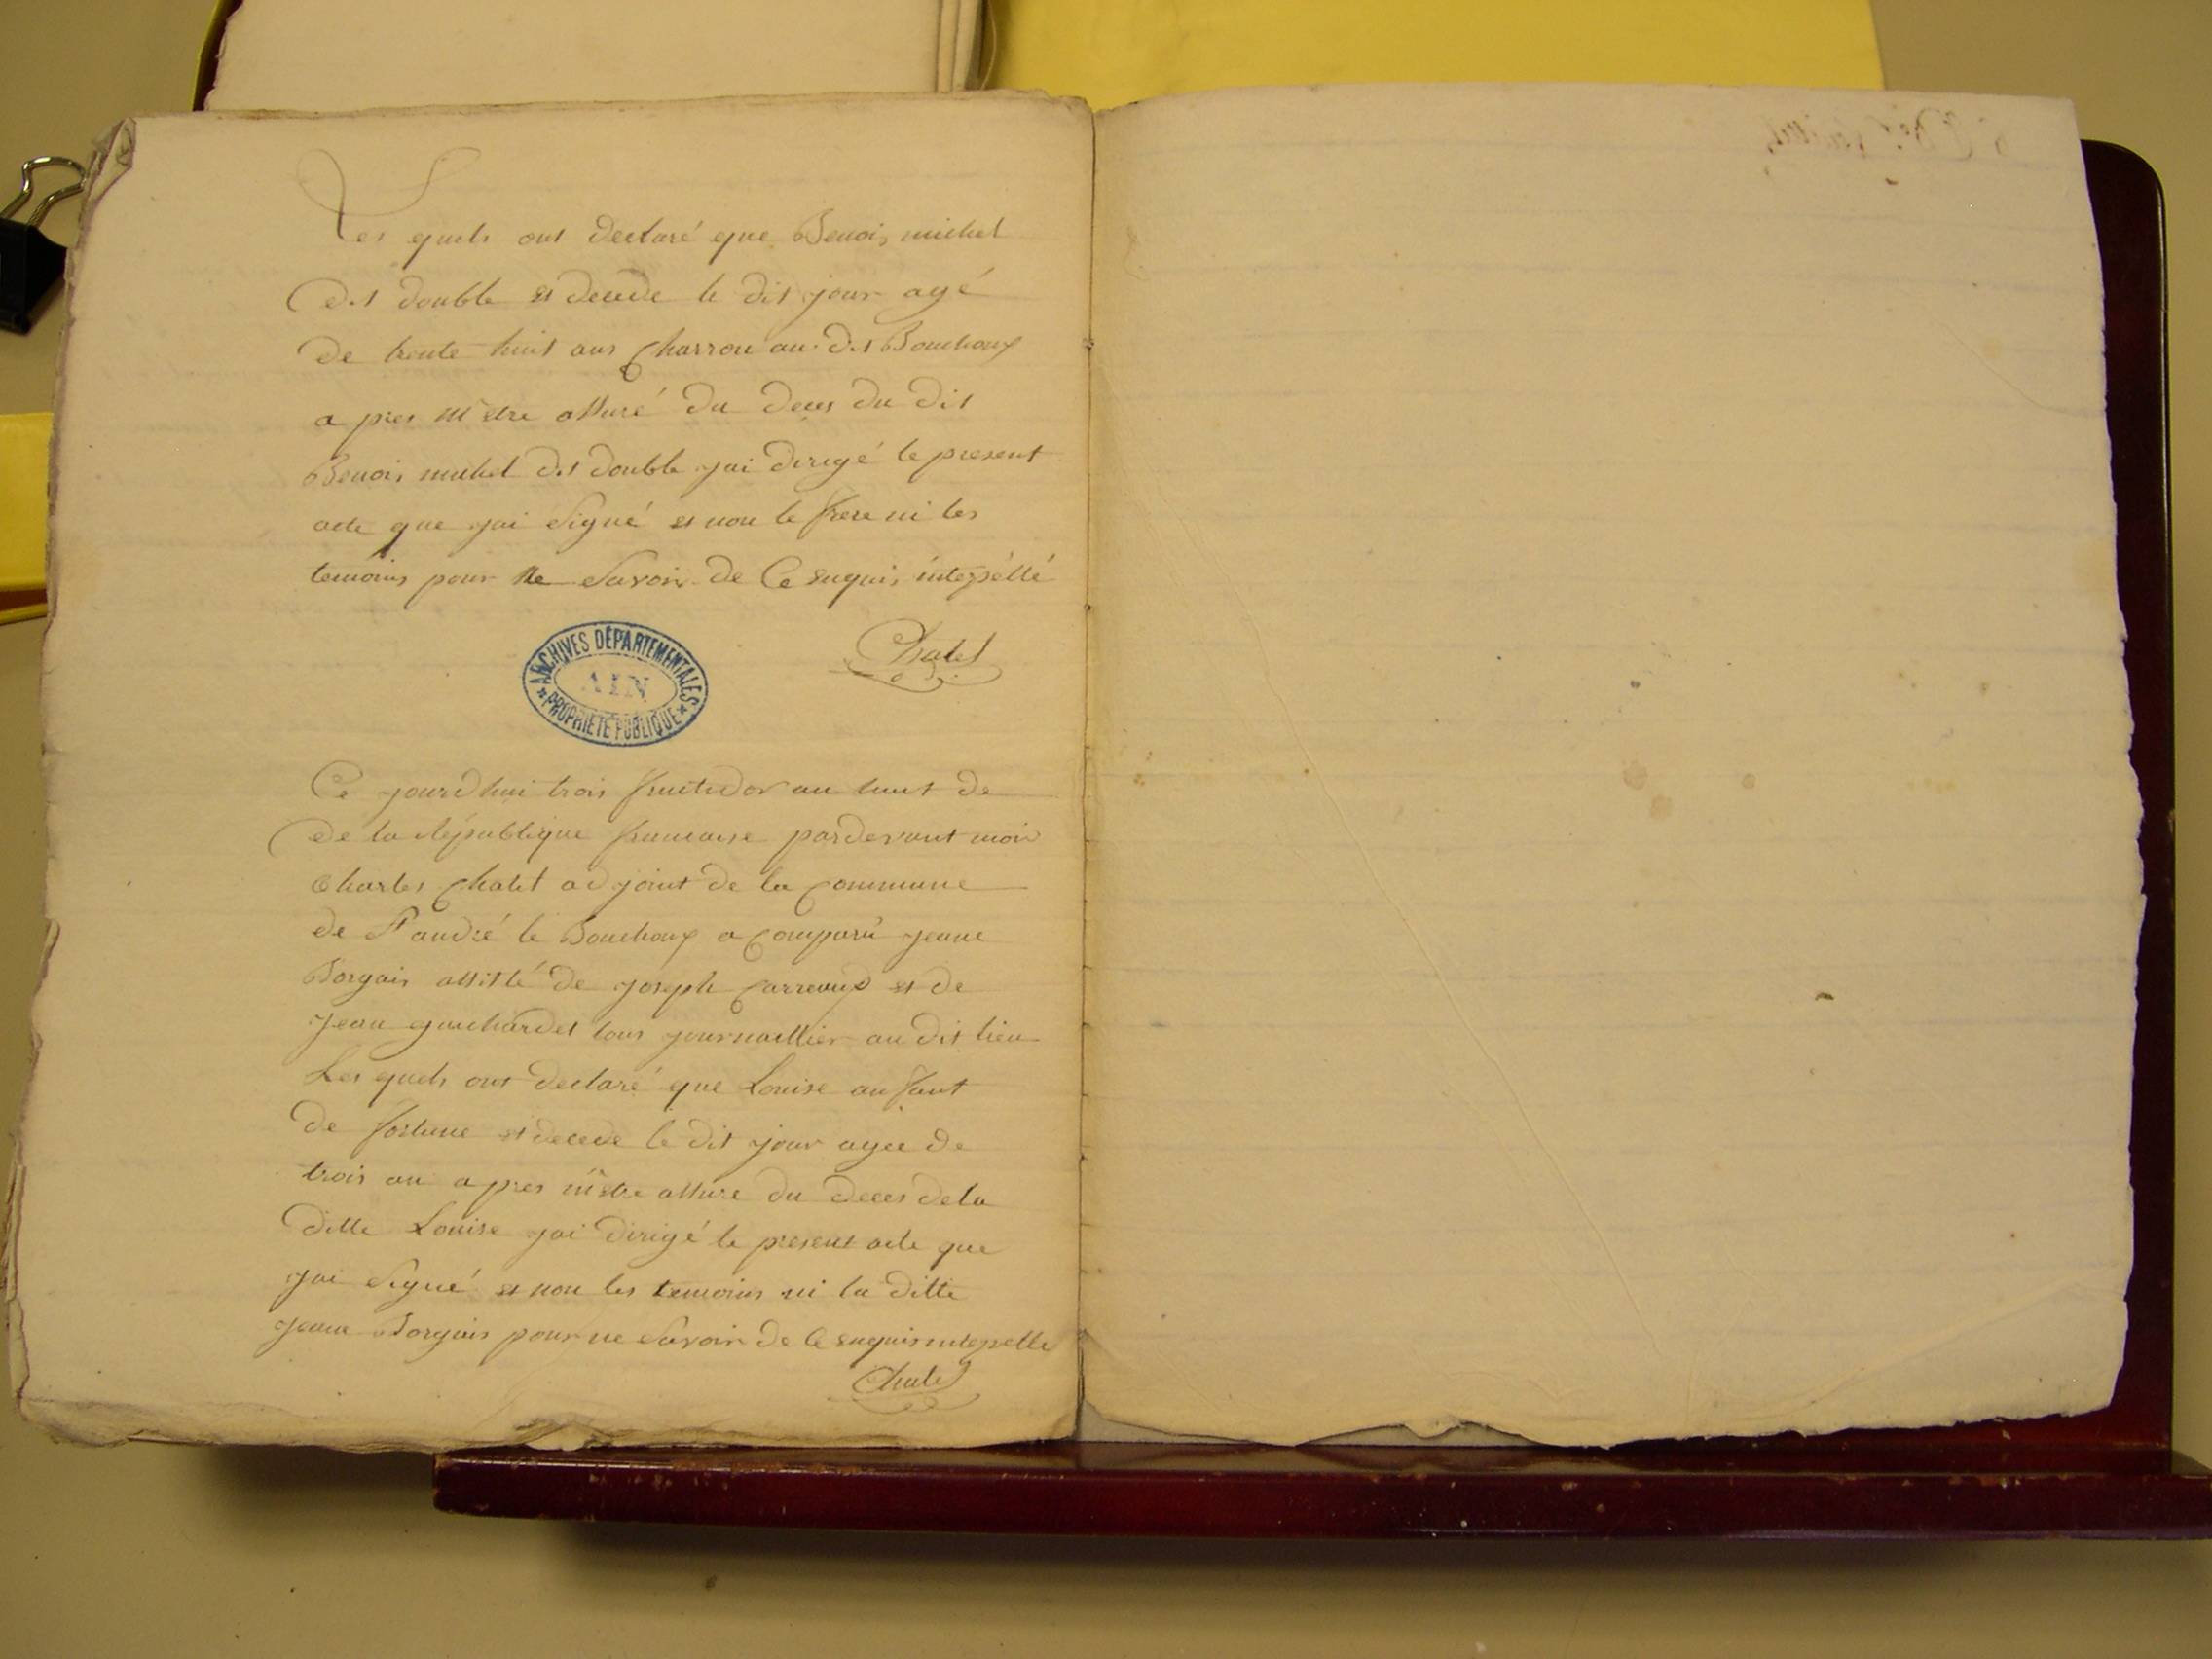 Les quels ont declaré que Benois michel
dit double et decede le dit jour agé
de trente huit ans charron au dit Bouchoux
a pres m'etre assuré du deces du dit
Benois michel dit double jai dirigé le present
acte que jai signé et non le frere ni les
temoins pour ne savoir de ce enquis interpéllé
Chatel
ARCHIVES DÉPARTEMENTALES
AIN
PROPRIÉTÉ PUBLIQUE
Ce jourdhui trois fructidor an huit de
de la république francaise pardevant moi
Charles Chatel adjoint de la commune
de St andré le Bouchoux a comparu jeane
Borgais assisté de joseph et de
jean guichardet tous journallier au dit lieu
Les quels ont declaré que Louise anfant
de fortune et decede le dit jour agee de
trois an a pres m'etre assure du deces de la
ditte Louise jai dirigé le present acte que
jai signé et non les temoins ni la ditte
jeane Borgais pour ne savoir de ce enquis interpelle
Chatel